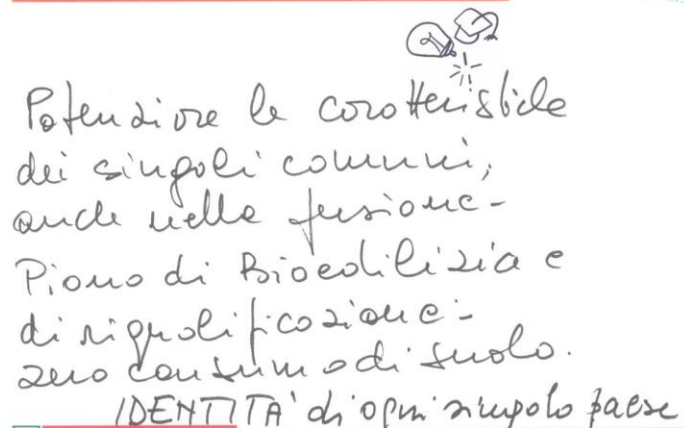 Potenziare le caratteristiche
dei singoli comuni,
anche nella fusione -
Piano di Bioedilizia e
di riqualificazione -
zero consumo di suolo.
IDENTITA' di ogni singolo paese